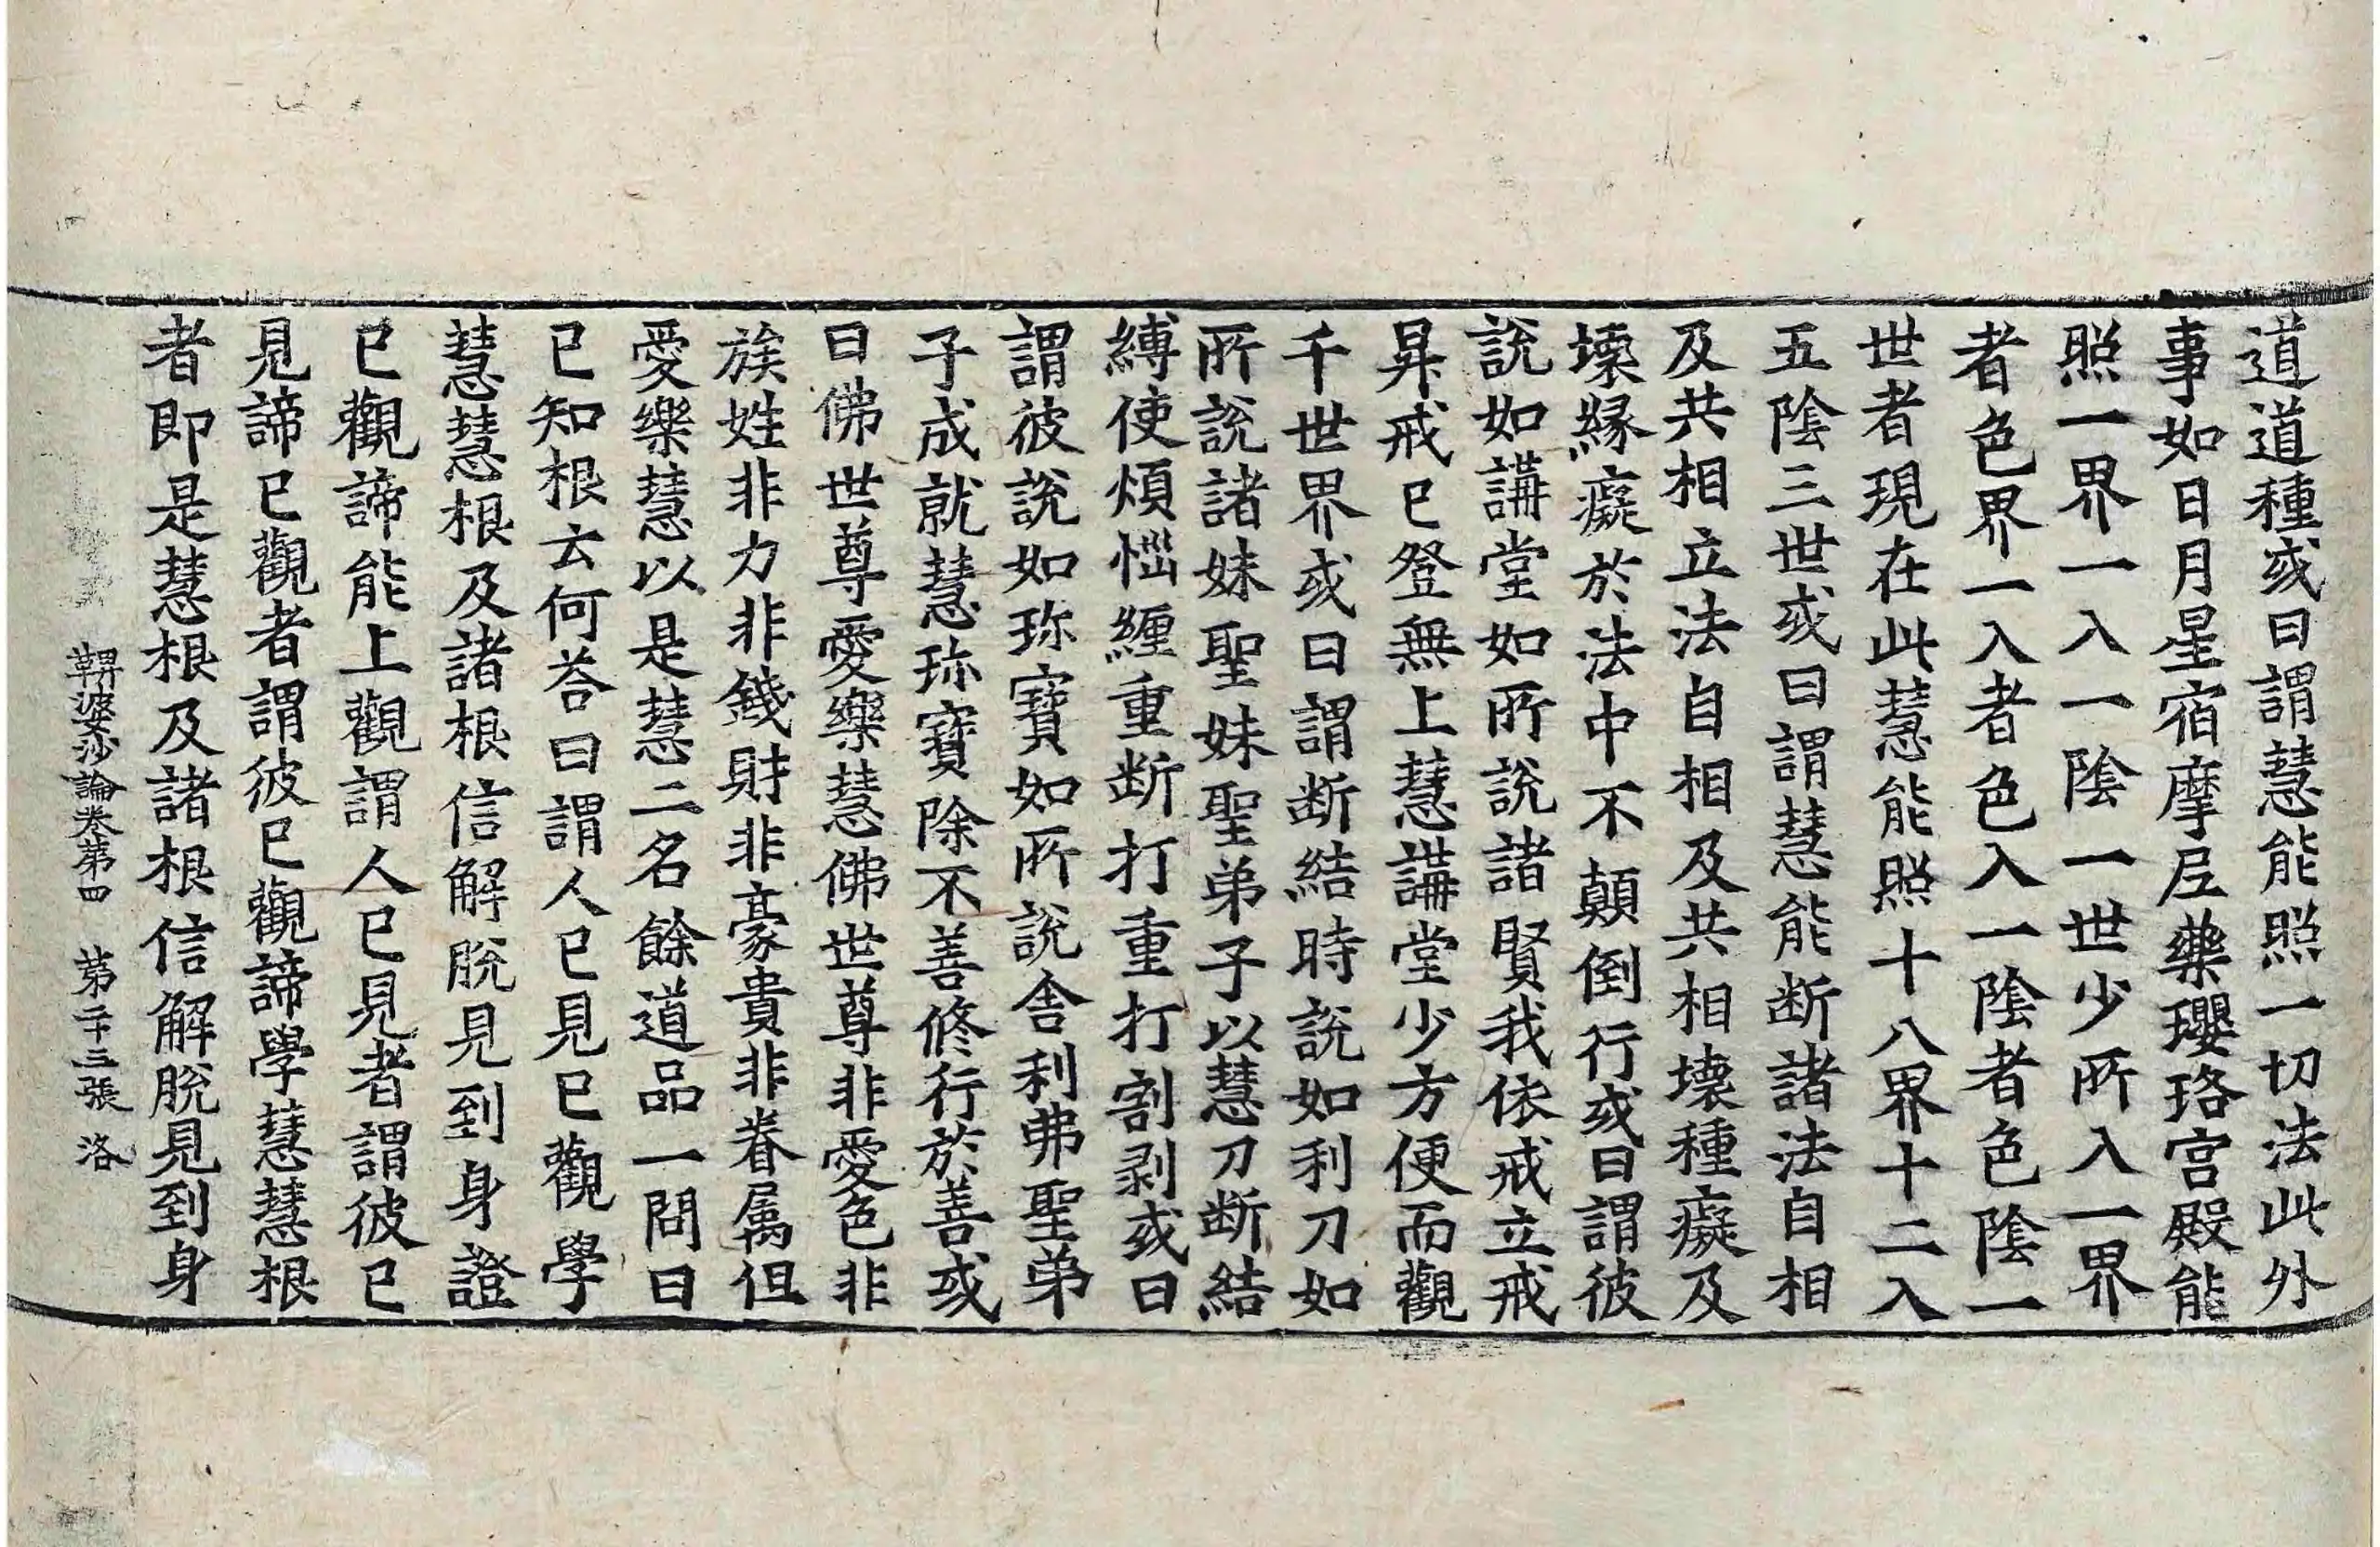 道道種或曰謂慧能照一切法此外
事如日月星宿摩𡰱藥瓔珞宮殿能
照一界一入一陰一世少所入一界
者色界一入者色入一陰者色陰一
世者現在此慧能照十八界十二入
五陰三世或曰謂慧能断諸法自相
及共相立法自相及共相壊種癡及
壊縁癡於法中不顛倒行或曰謂彼
說如講堂如所說諸賢我依戒立戒
昇戒已登無上慧講堂少方便而觀
千世界或曰謂断結時說如利刀如
所說諸妹聖妹聖弟子以慧刀断結
縛使煩惱纏重断打重打割剥或曰
謂彼說如珎寶如所說舎利弗聖弟
子成就慧珎寶除不善修行於善或
曰佛世尊愛樂慧佛世尊非愛色非
族姓非力非錢財非豪貴非眷属但
愛樂慧以是慧二名餘道品一問曰
已知根云何荅曰謂人已見已觀學
慧慧根及諸根信解脫見到身證
已觀諦能上觀謂人已見者謂彼已
見諦已觀者謂彼已觀諦學慧慧根
者即是慧根及諸根信解脫見到身
鞞婆沙論卷第四　第二十三張　洛